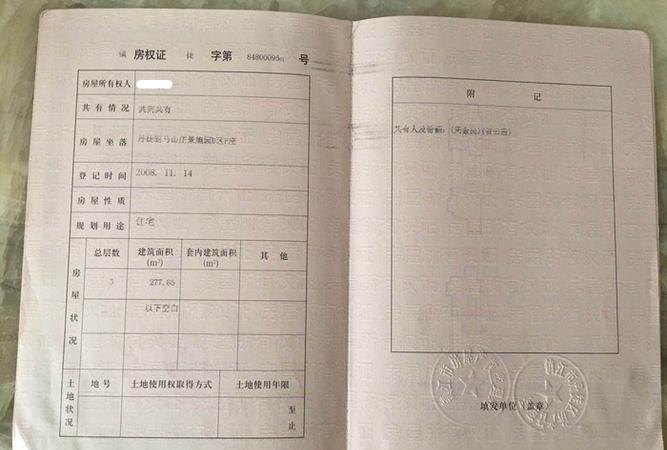 镇 房权证 徒 字第 84800095 号
房屋所有权人
共有情况 共同共有
房屋坐落
登记时间 2008.11.14
房屋性质
规划用途 住宅
房屋状况
总层数 建筑面积(m²) 套内建筑面积(m²) 其他
3 277.85
以下空白
土地状况
地号 土地使用权取得方式 土地使用年限
至
止
附 记
共有人及份额:
填发单位(盖章)